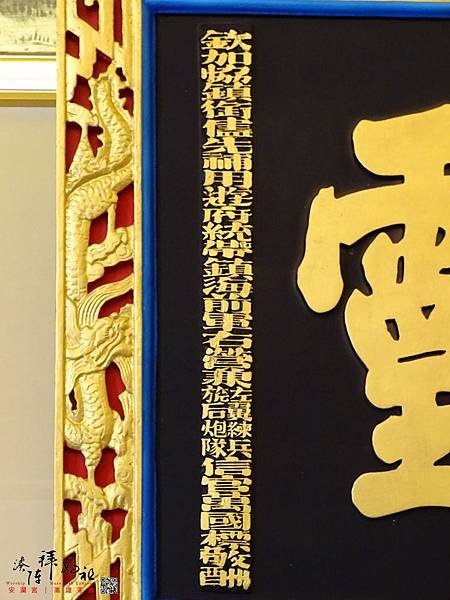 欽加協鎮銜儘先補用遊府統帶鎮海前軍右營兼左翼練兵旂后炮隊信官萬國標敬酬
湊陣拜媽祖
安瀾宮｜高雄